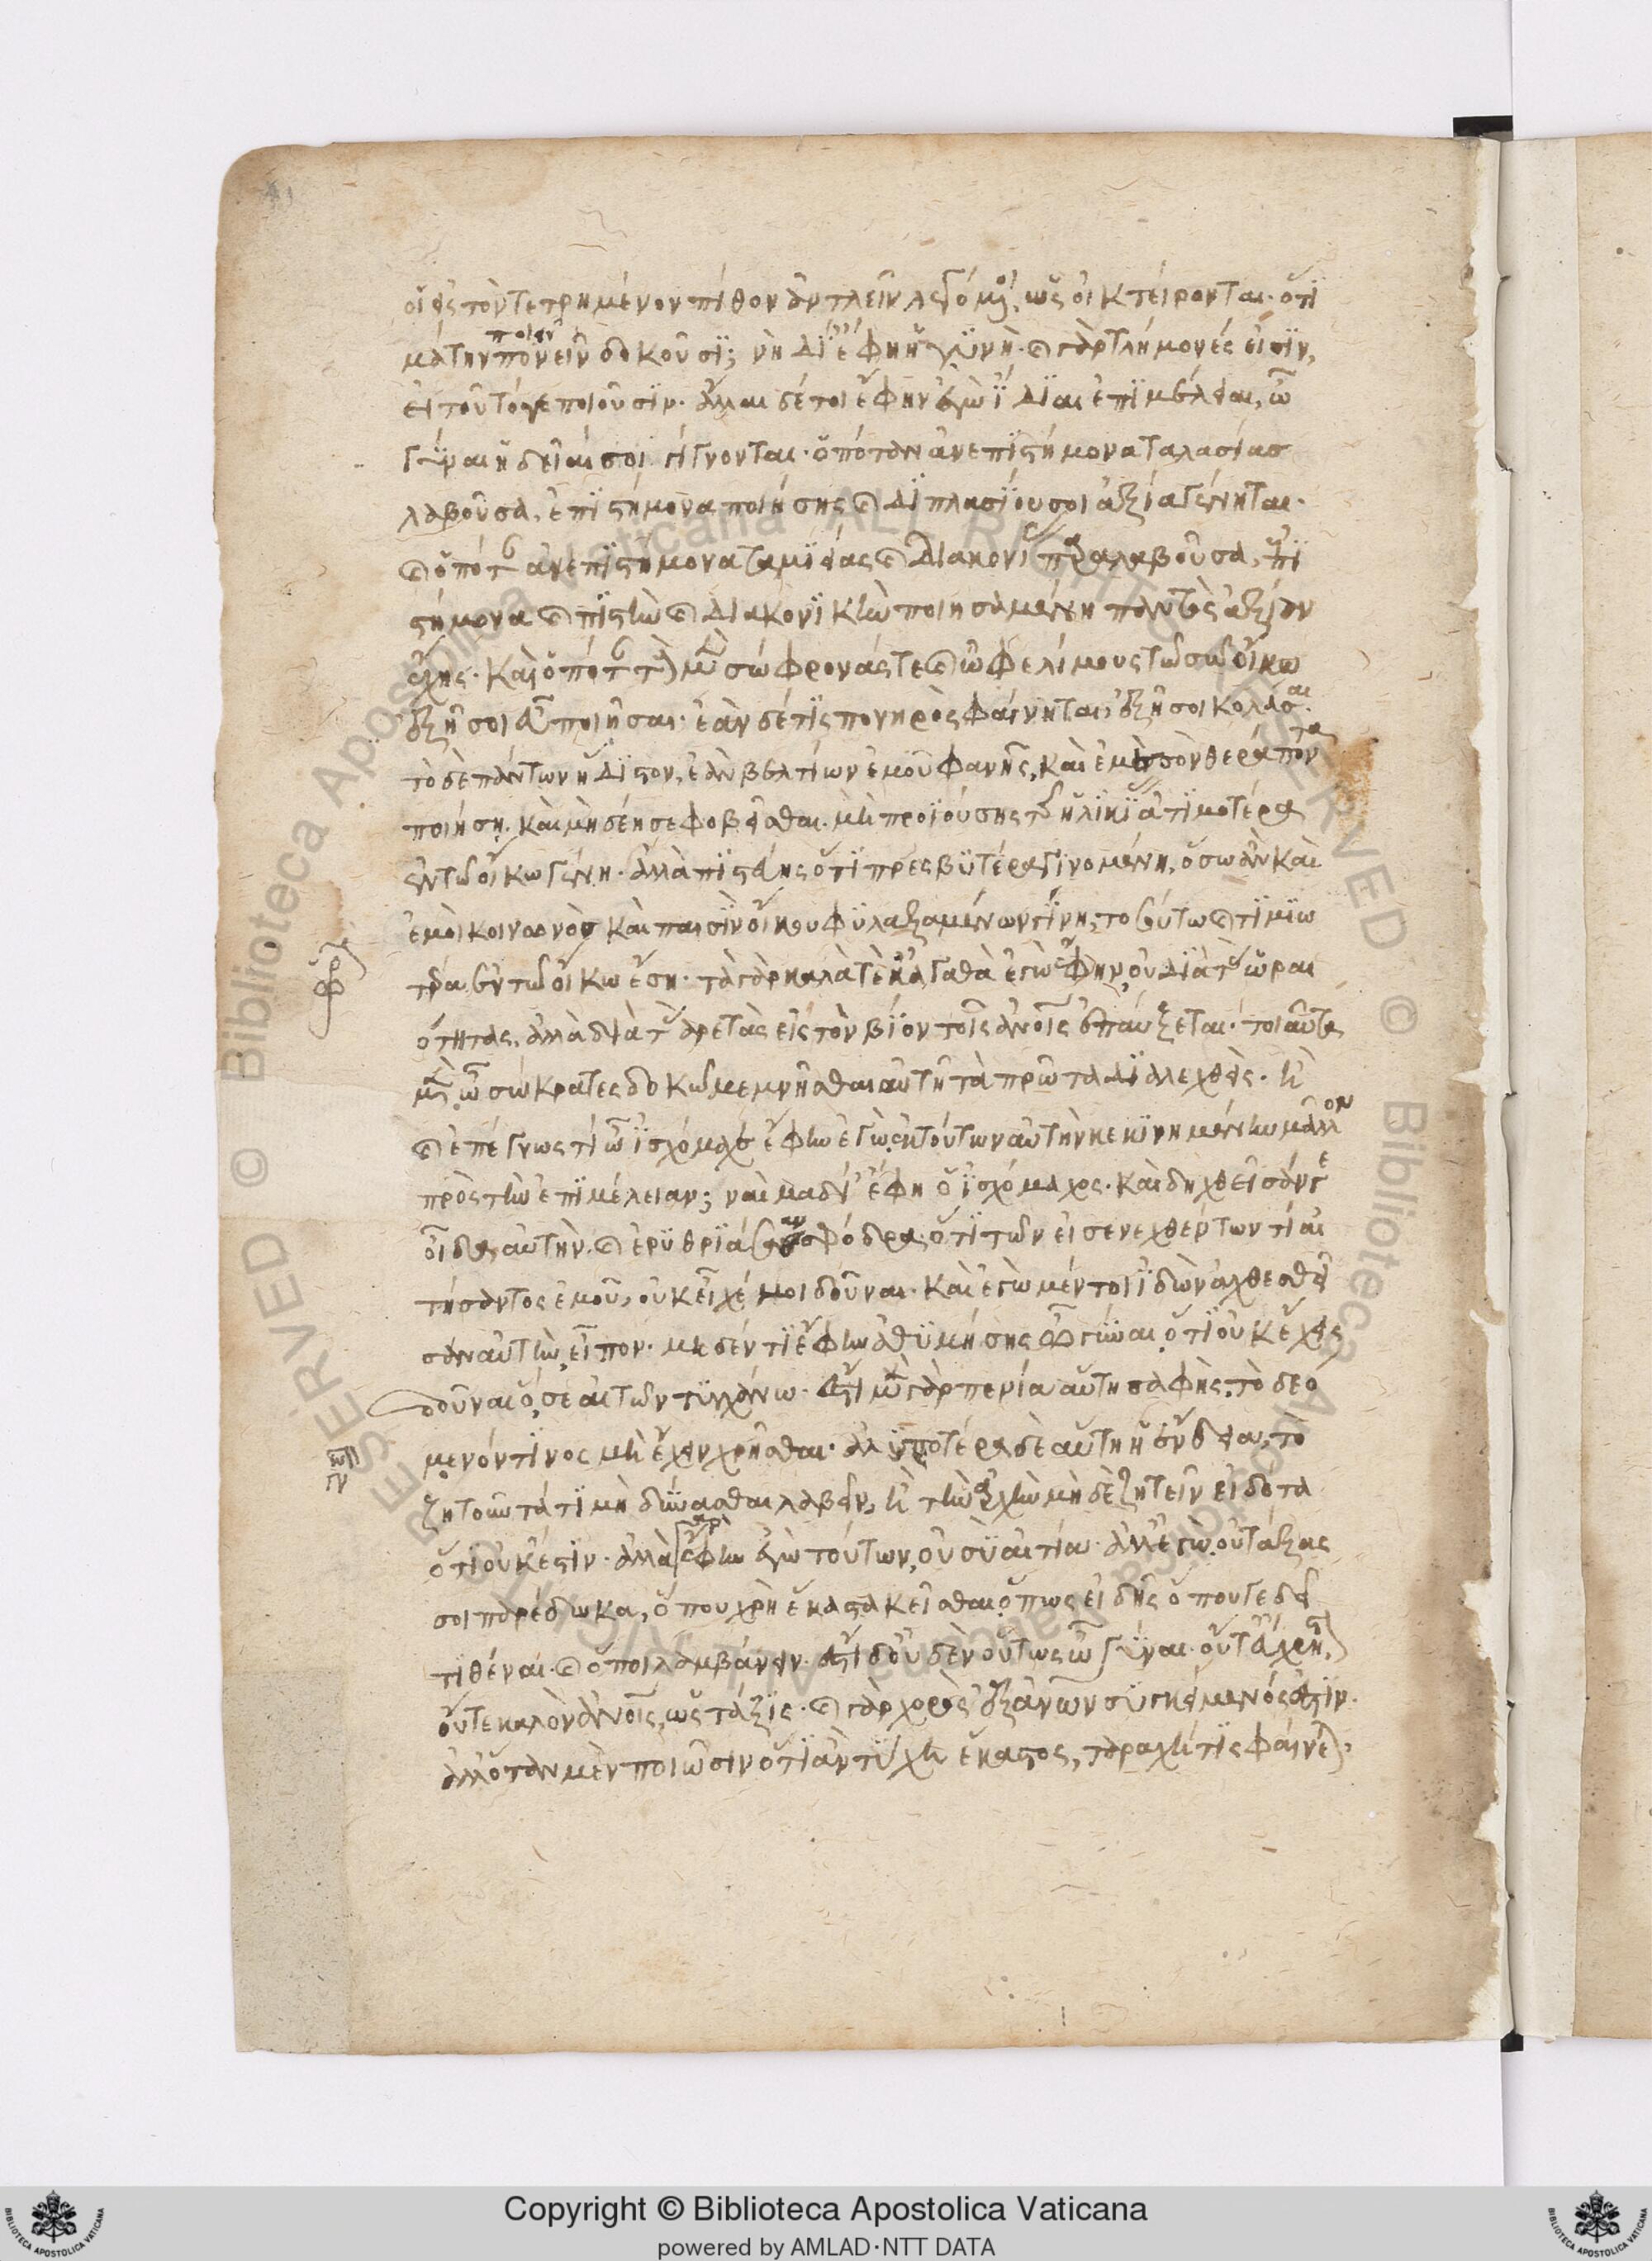 οἱ εἰς τὸν τετρημένον πίθον ἀντλεῖν λεγόμενοι, ὡς οἰκτείρονται· ὅτι
μάτην πονεῖν δοκοῦσι; νὴ Δί' ἔφη ἡ γυνή. καὶ γὰρ τλήμονές εἰσιν,
ποιεῖν
εἰ τοῦτό γε ποιοῦσιν. ἄλλαι δέ τοι ἔφην ἐγὼ ἴδιαι ἐπιμέλειαι, ὦ
γύναι ἡδεῖαί σοι γίγνονται. ὁπόταν ἀνεπιστήμονα ταλασίας
λαβοῦσα, ἐπιστήμονα ποιήσῃς καὶ διπλασίου σοι ἀξία γένηται.
καὶ ὁπόταν ἀνεπιστήμονα ταμιείας καὶ διακονίας παραλαβοῦσα, ἐπι
στήμονα καὶ πιστὴν καὶ διακονικὴν ποιησαμένη παντὸς ἀξίαν
ἔχῃς. καὶ ὁπόταν τοὺς μὲν σώφρονάς τε καὶ ὠφελίμους τῷ σῷ οἴκῳ
ἐξῇ σοι εὖ ποιῆσαι. ἐὰν δέ τις πονηρὸς φαίνηται, ἐξῇ σοι κολάσαι.
τὸ δὲ πάντων ἥδιστον, ἐὰν βελτίων ἐμοῦ φανῇς, καὶ ἐμὲ σὸν θεράποντα
ποιήσῃ. καὶ μὴ δέῃ σε φοβεῖσθαι. μὴ προϊούσης τῆς ἡλικίας ἀτιμοτέρα
ἐν τῷ οἴκῳ γένῃ. ἀλλὰ πιστεύῃς ὅτι πρεσβυτέρα γινομένη, ὅσῳ ἂν καὶ
ἐμοὶ κοινωνὸς καὶ παισὶν οἴκου φυλαξαμένων γίνῃ, τοσούτῳ καὶ τιμιω
τέρα ἐν τῷ οἴκῳ ἔσῃ. τὰ γὰρ καλά τε κἀγαθὰ ἐγὼ ἔφην, οὐ διὰ τὰς ὡραι
ότητας, ἀλλὰ διὰ τὰς ἀρετὰς εἰς τὸν βίον τοῖς ἀνοις ἐπαύξεται. τοιαῦτα
μὲν ὦ σώκρατες δοκῶ μεμνῆσθαι αὐτῇ τὰ πρῶτα διαλεχθείς. ἦ
καὶ ἐπέγνως τι ὦ ἰσχόμαχε ἔφην ἐγὼ ἐκ τούτων αὐτὴν κεκινημένην μᾶλλον
πρὸς τὴν ἐπιμέλειαν; ναὶ μὰ δί' ἔφη ὁ ἰσχόμαχος. καὶ δηχθεῖσάν γε
οἶδα αὐτὴν. καὶ ἐρυθριάσασαν σφόδρα, ὅτι τῶν εἰσενεχθέντων τι αἰ
τήσαντος ἐμοῦ, οὐκ εἶχέ μοι δοῦναι. καὶ ἐγὼ μέντοι ἰδὼν ἀχθεσθεῖ
σαν αὐτὴν, εἶπον. μηδέν τι ἔφην ἀθυμήσῃς ὦ γύναι, ὅτι οὐκ ἔχεις
δοῦναι ὅ σε αἰτῶν τυγχάνω. ἔστι μὲν γὰρ πενία αὕτη σαφής, τὸ δεό
μενόν τινος μὴ ἔχειν χρῆσθαι. ἀλυποτέρα δὲ αὕτη ἡ ἔνδεια, τὸ
ζητοῦντά τι μὴ δύνασθαι λαβεῖν, ἢ τὴν ἀρχὴν μηδὲ ζητεῖν εἰδότα
ὅτι οὐκ ἔστιν. ἀλλὰ γὰρ ἔφην ἐγὼ τούτων, οὐ σὺ αἰτία. ἀλλ' ἐγὼ, οὐ τάξας
σοι παρέδωκα, ὅπου χρὴ ἕκαστα κεῖσθαι, ὅπως εἰδῇς ὅπου τε δεῖ
τιθέναι. καὶ ὅποι λαμβάνειν. ἔστι δ' οὐδὲν οὕτως ὦ γύναι. οὔτ' εὔχρηστον
οὔτε καλὸν ἀνοις, ὡς τάξις. καὶ γὰρ χορὸς ἐξ ἀνων συγκείμενός ἐστιν.
ἀλλ' ὅταν μὲν ποιῶσιν ὅτι ἂν τύχῃ ἕκαστος, ταραχή τις φαίνεται,